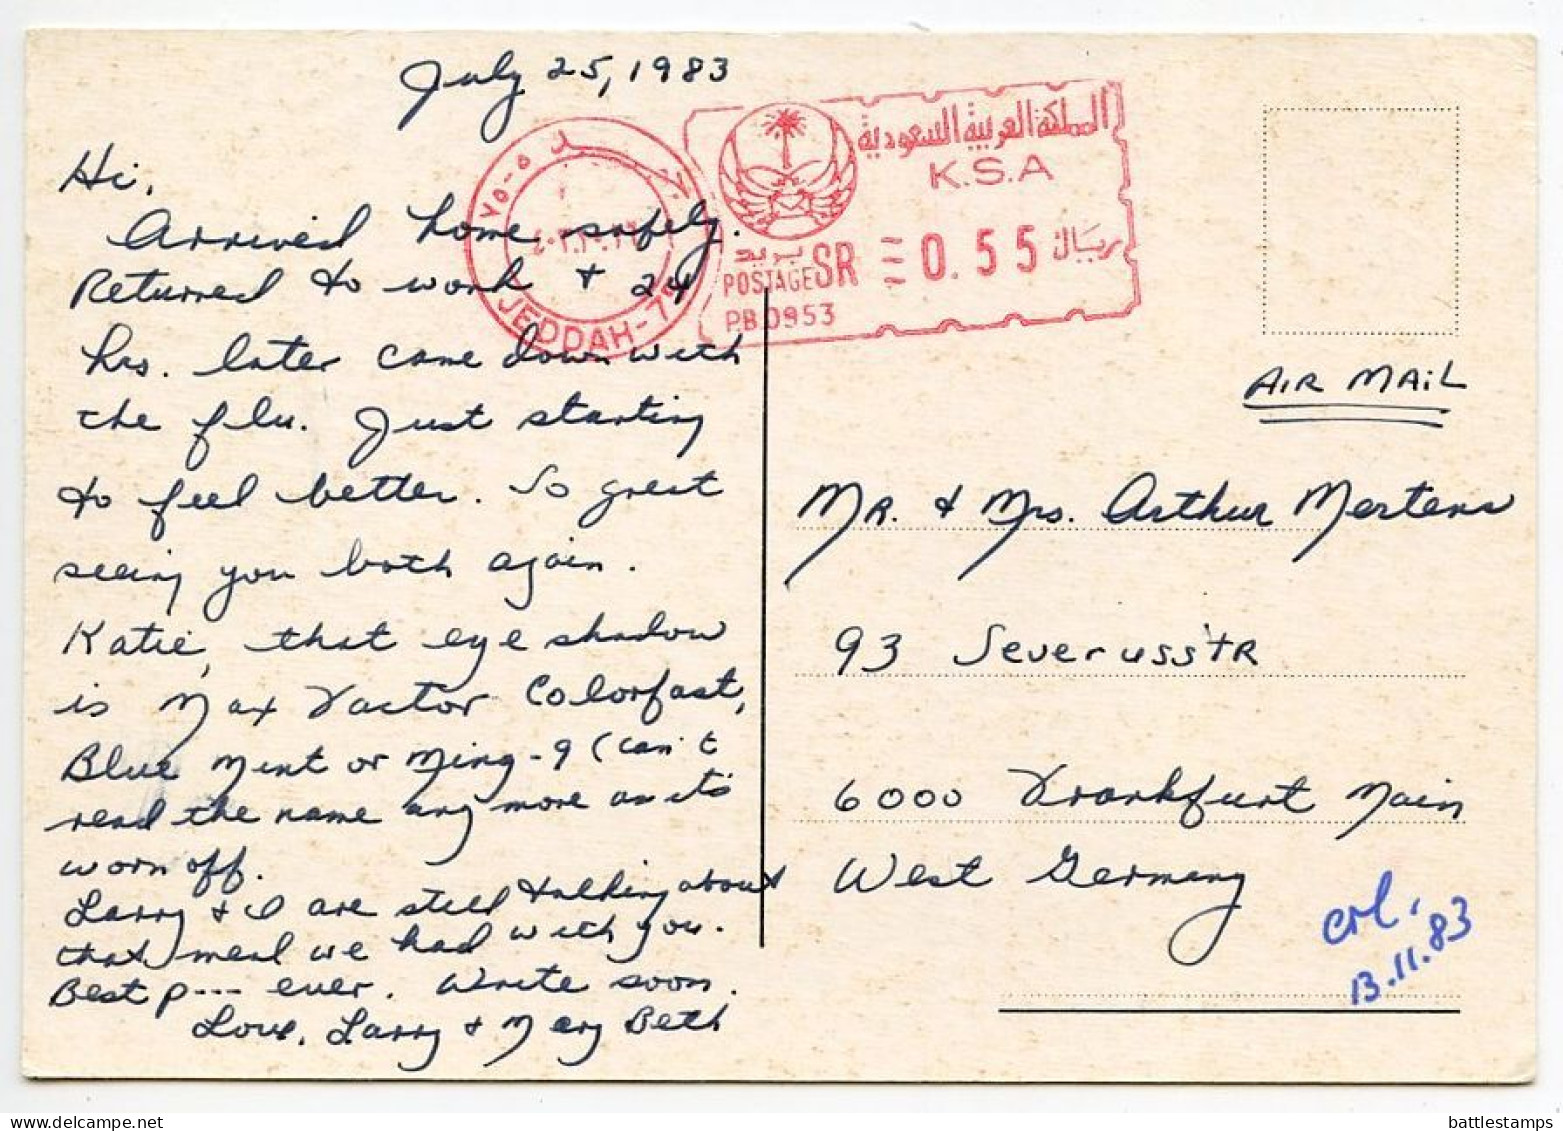 July 25, 1983
Hi,
Arrived home safely.
Returned to work + 24
hrs. later came down with
the flu. Just starting
to feel better. So great
seeing you both again.
Katie, that eye shadow
is Max Factor Colorfast,
Blue Mint or Ming-9 (can't
read the name any more as it's
worn off.
Larry & I are still talking about
that meal we had with you.
Best p--- ever. Write soon.
Love, Larry & Mary Beth
جدة
٧٥-٥
JEDDAH-75
المملكة العربية السعودية
K.S.A
بريد
POSTAGE SR 0.55 ريال
P.B.0953
AIR MAIL
Mr. & Mrs. Arthur Mertens
93 Severusstr
6000 Frankfurt Main
West Germany
13.11.83
battlestamps